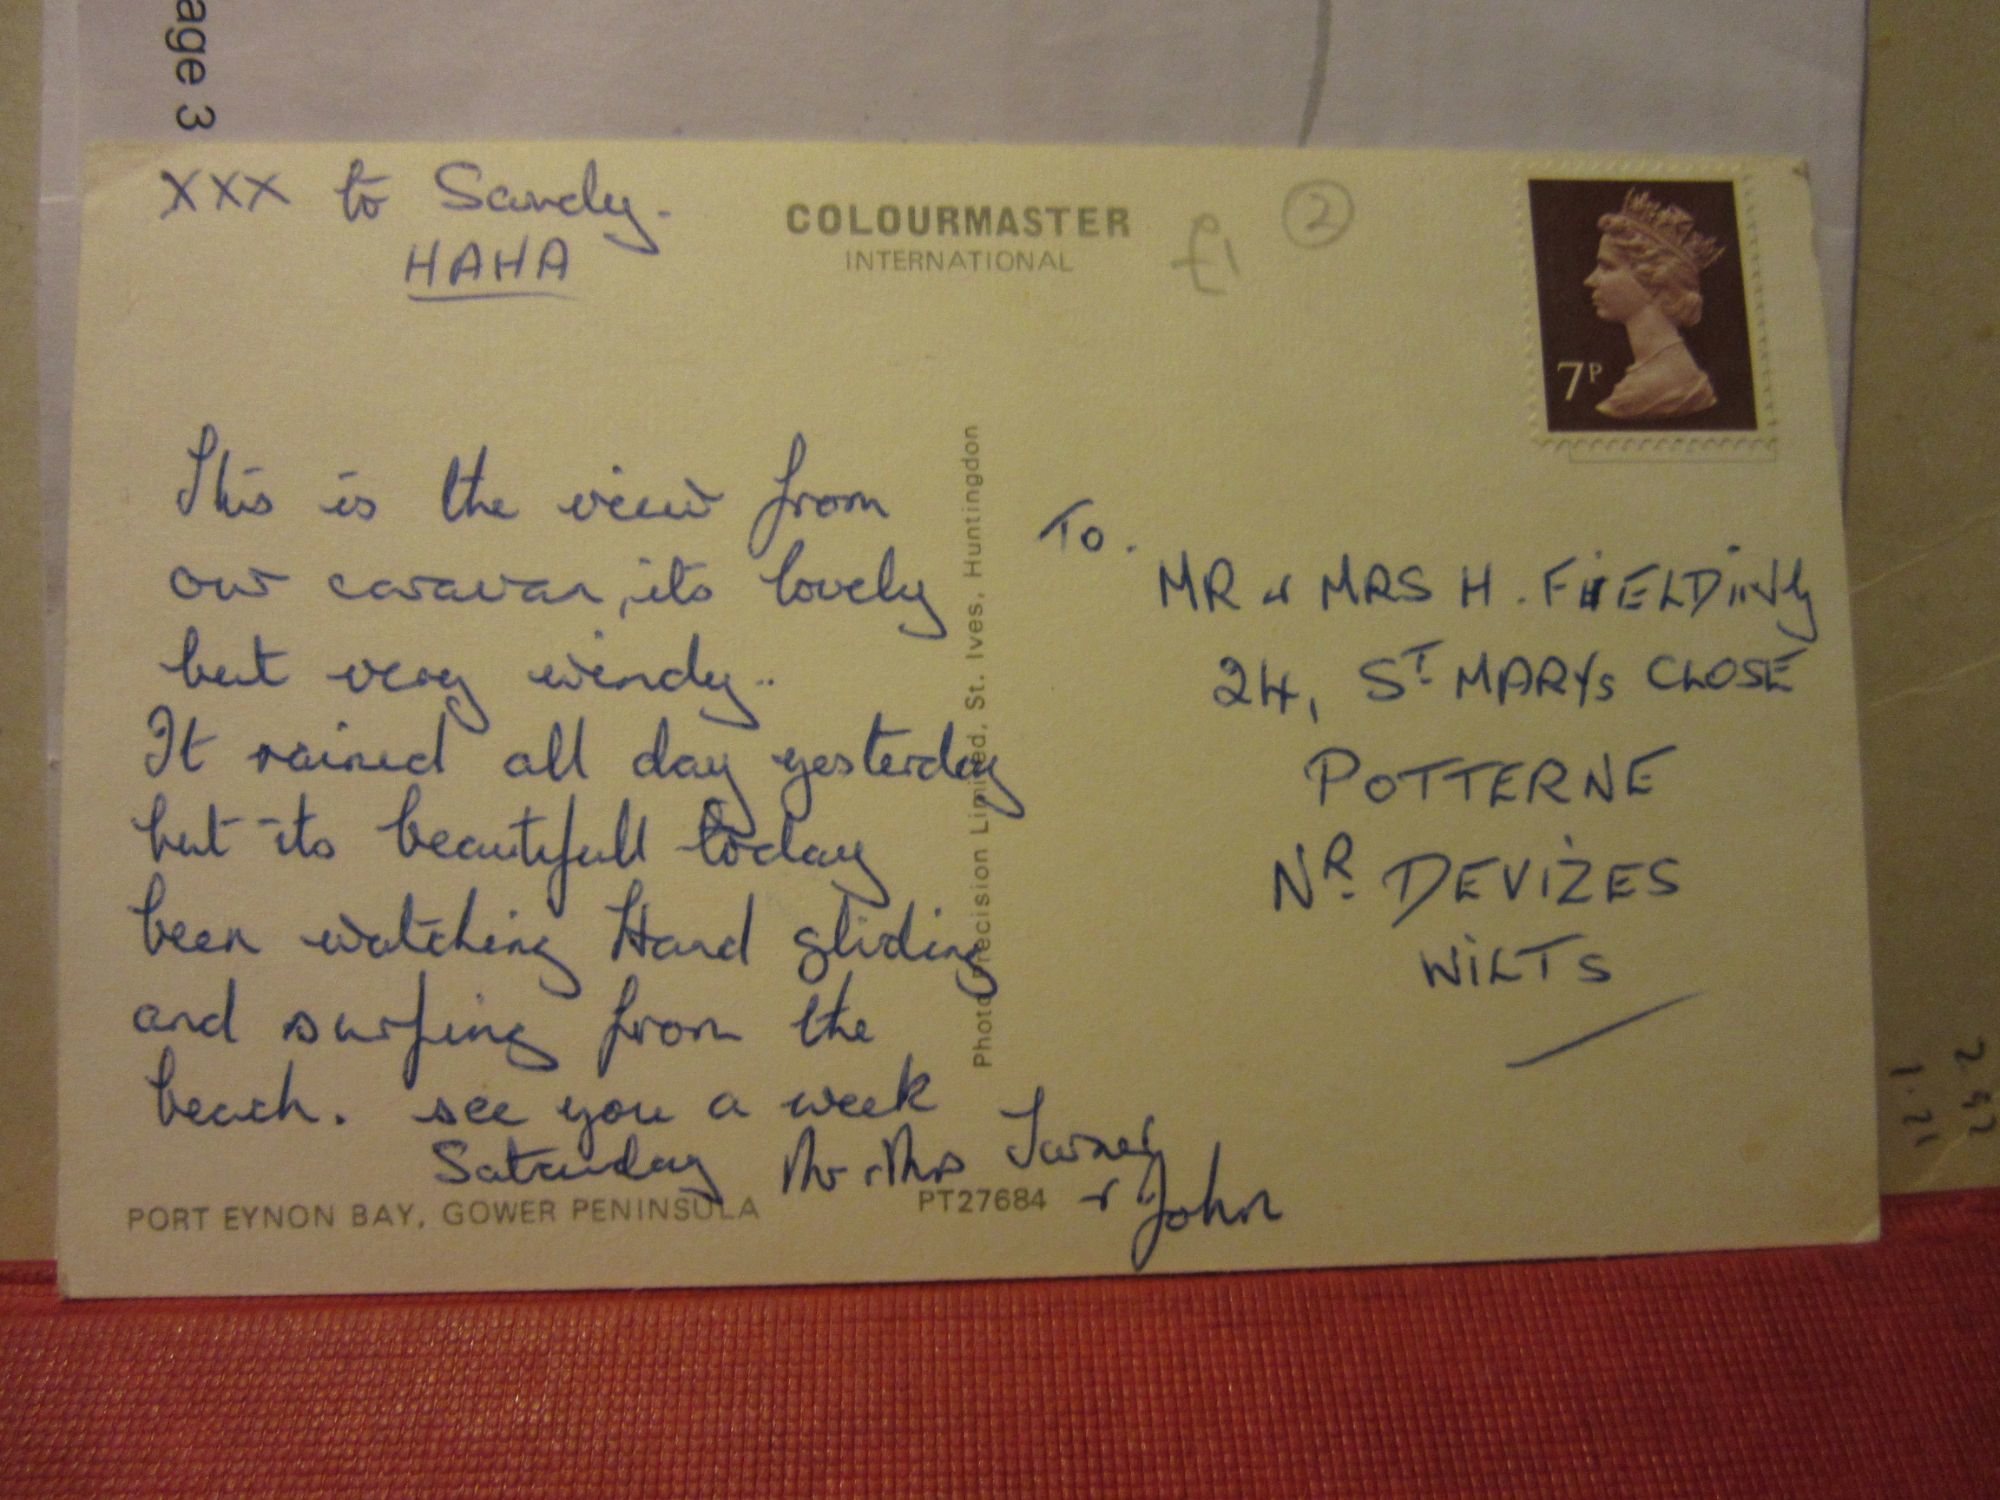 age 3
xxx to Sandy.
HAHA
COLOURMASTER
INTERNATIONAL
£1
2
7P
This is the view from
our caravan, its lovely
but very windy..
It rained all day yesterday
but its beautifull today
been watching Hand gliding
and surfing from the
beach. see you a week
Saturday Mr & Mrs Turner
& John
PORT EYNON BAY, GOWER PENINSULA
PT27684
Photo Precision Limited, St. Ives, Huntingdon
To.
MR & MRS H. FIELDING
24, ST MARYS CLOSE
POTTERNE
NR. DEVIZES
WILTS